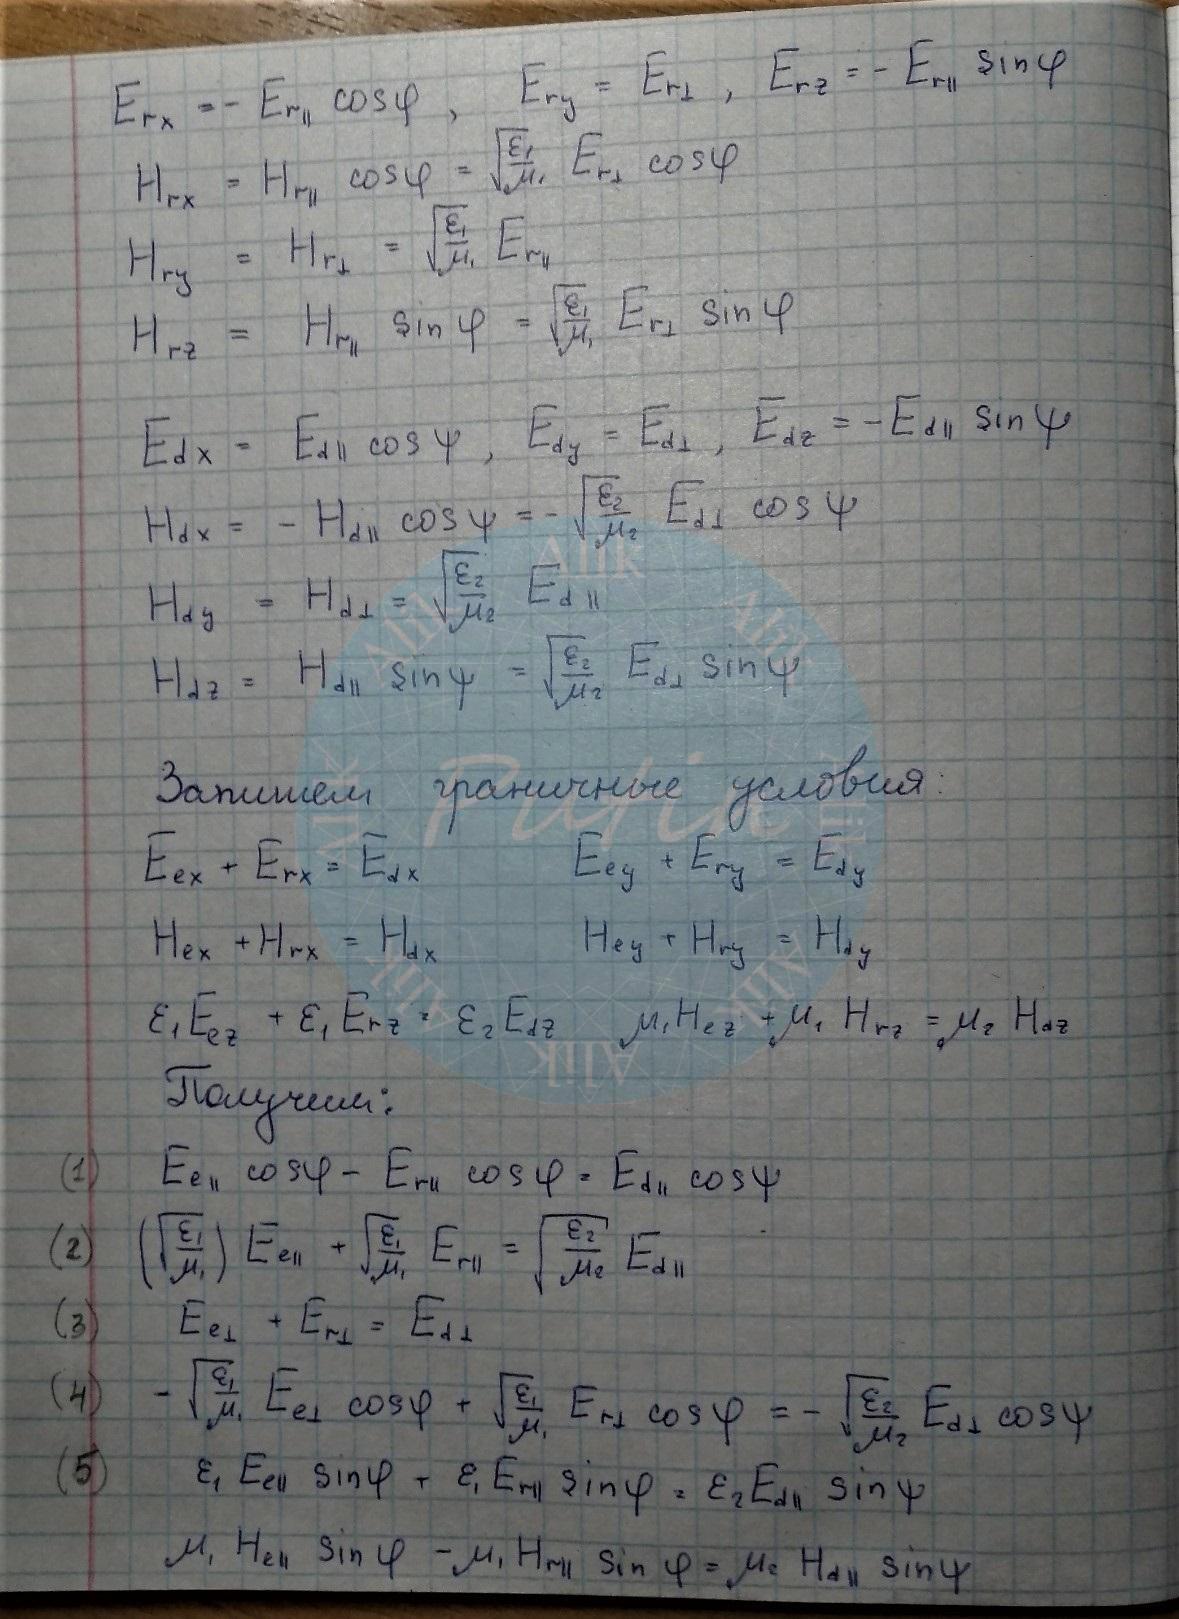 E_rx = - E_r|| cosφ , E_ry = E_r⊥ , E_rz = - E_r|| sinφ
H_rx = H_r|| cosφ = √(ε₁/μ₁) E_r⊥ cosφ
H_ry = H_r⊥ = √(ε₁/μ₁) E_r||
H_rz = H_r|| sinφ = √(ε₁/μ₁) E_r⊥ sinφ
E_dx = E_d|| cosψ , E_dy = E_d⊥ , E_dz = -E_d|| sinψ
H_dx = - H_d|| cosψ = - √(ε₂/μ₂) E_d⊥ cosψ
H_dy = H_d⊥ = √(ε₂/μ₂) E_d||
H_dz = H_d|| sinψ = √(ε₂/μ₂) E_d⊥ sinψ
Запишем граничные условия:
E_ex + E_rx = E_dx E_ey + E_ry = E_dy
H_ex + H_rx = H_dx H_ey + H_ry = H_dy
ε₁E_ez + ε₁E_rz = ε₂E_dz μ₁H_ez + μ₁H_rz = μ₂H_dz
Получим:
(1) E_e|| cosφ - E_r|| cosφ = E_d|| cosψ
(2) (√(ε₁/μ₁)) E_e|| + √(ε₁/μ₁) E_r|| = √(ε₂/μ₂) E_d||
(3) E_e⊥ + E_r⊥ = E_d⊥
(4) - √(ε₁/μ₁) E_e⊥ cosφ + √(ε₁/μ₁) E_r⊥ cosφ = - √(ε₂/μ₂) E_d⊥ cosψ
(5) ε₁E_e|| sinφ + ε₁E_r|| sinφ = ε₂E_d|| sinψ
μ₁H_e|| sinφ - μ₁H_r|| sinφ = μ₂H_d|| sinψ
Alik
Alik
Alik
Alik
Alik
Alik
Alik
Alik
Putin